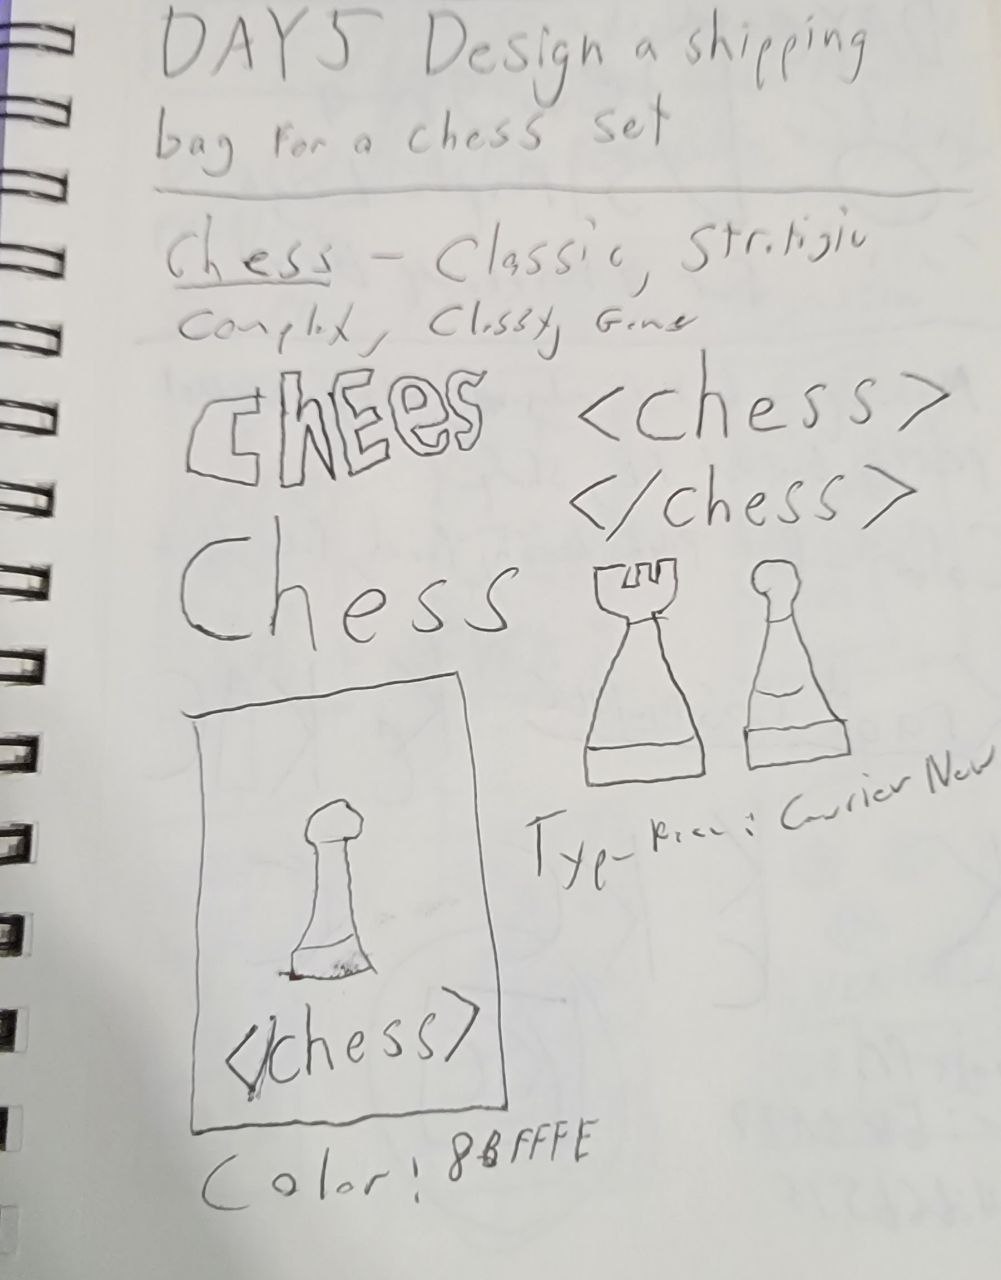 DAY 5 Design a shipping
bag for a chess set
Chess - Classic, Stratigic
Complex, Classy, Game
ChEes
<chess>
</chess>
Chess
Type-Face: Courier New
</chess>
Color: 8BFFFE